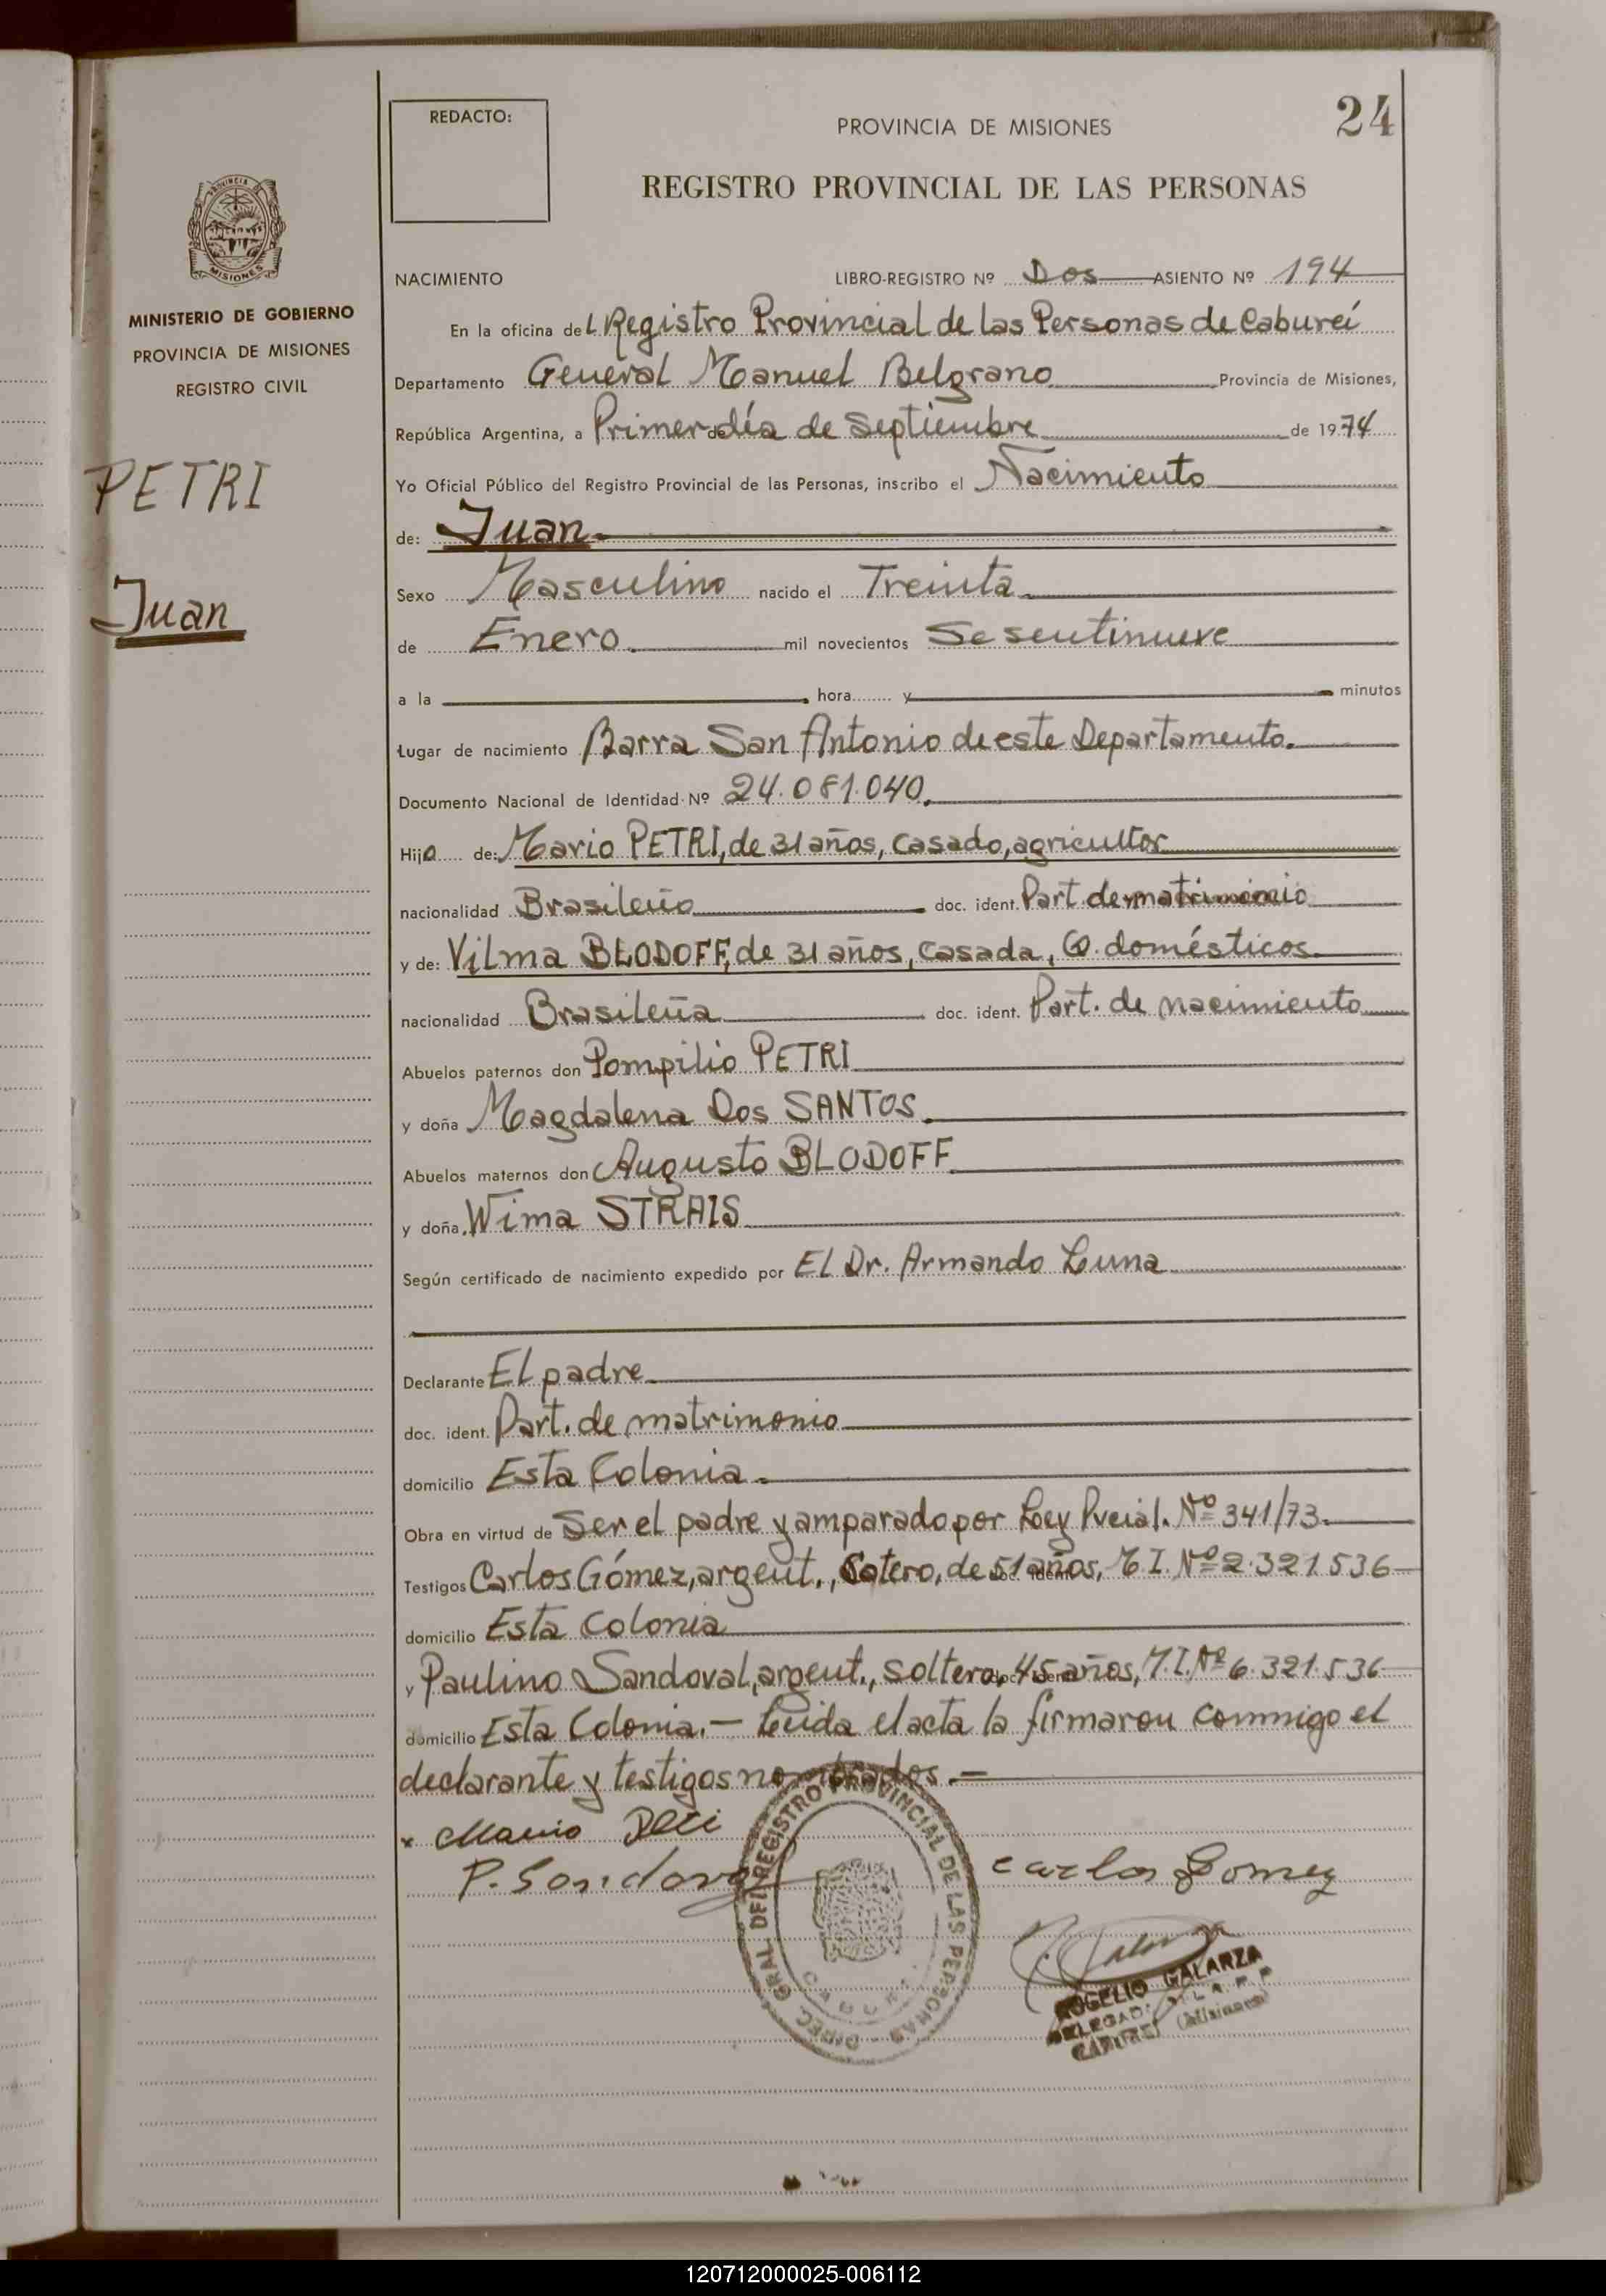 24
REDACTO:
PROVINCIA DE MISIONES
REGISTRO PROVINCIAL DE LAS PERSONAS
PROVINCIA DE
MISIONES
MINISTERIO DE GOBIERNO
PROVINCIA DE MISIONES
REGISTRO CIVIL
PETRI
Juan
NACIMIENTO LIBRO-REGISTRO Nº Dos ASIENTO Nº 194
En la oficina del Registro Provincial de las Personas de Cabureí
Departamento General Manuel Belgrano Provincia de Misiones,
República Argentina, a Primer día de Septiembre de 1974
Yo Oficial Público del Registro Provincial de las Personas, inscribo el Nacimiento
de: Juan
Sexo Masculino nacido el Treinta
de Enero mil novecientos Sesentinueve
a la hora y minutos
Lugar de nacimiento Barra San Antonio de este Departamento.
Documento Nacional de Identidad Nº 24.081.040.
Hijo de: Mario PETRI, de 31 años, casado, agricultor
nacionalidad Brasileño doc. ident. Part. de matrimonio
y de: Vilma BLODOFF, de 31 años, casada, Q. domésticos
nacionalidad Brasileña doc. ident. Part. de nacimiento
Abuelos paternos don Pompilio PETRI
y doña Magdalena Dos SANTOS.
Abuelos maternos don Augusto BLODOFF
y doña Wima STRAIS
Según certificado de nacimiento expedido por El Dr. Armando Luna
Declarante El padre
doc. ident. Part. de matrimonio
domicilio Esta Colonia
Obra en virtud de Ser el padre y amparado por Ley Pvcial. Nº 341/73.
Testigos Carlos Gómez, argent., Sotero, de 51 años, M I. Nº 2.321.536
domicilio Esta Colonia
y Paulino Sandoval, argent., soltero, 45 años, M.I. Nº 6.321.536
domicilio Esta Colonia.— Leida el acta la firmaron conmigo el
declarante y testigos nombrados.—
x Mario Petri
P. Sandoval
Carlos Gomez
DIREC. GRAL. DEL REGISTRO PROVINCIAL DE LAS PERSONAS
CABUREI
ROGELIO GALARZA
DELEGADO
CABUREI (Misiones)
120712000025-006112